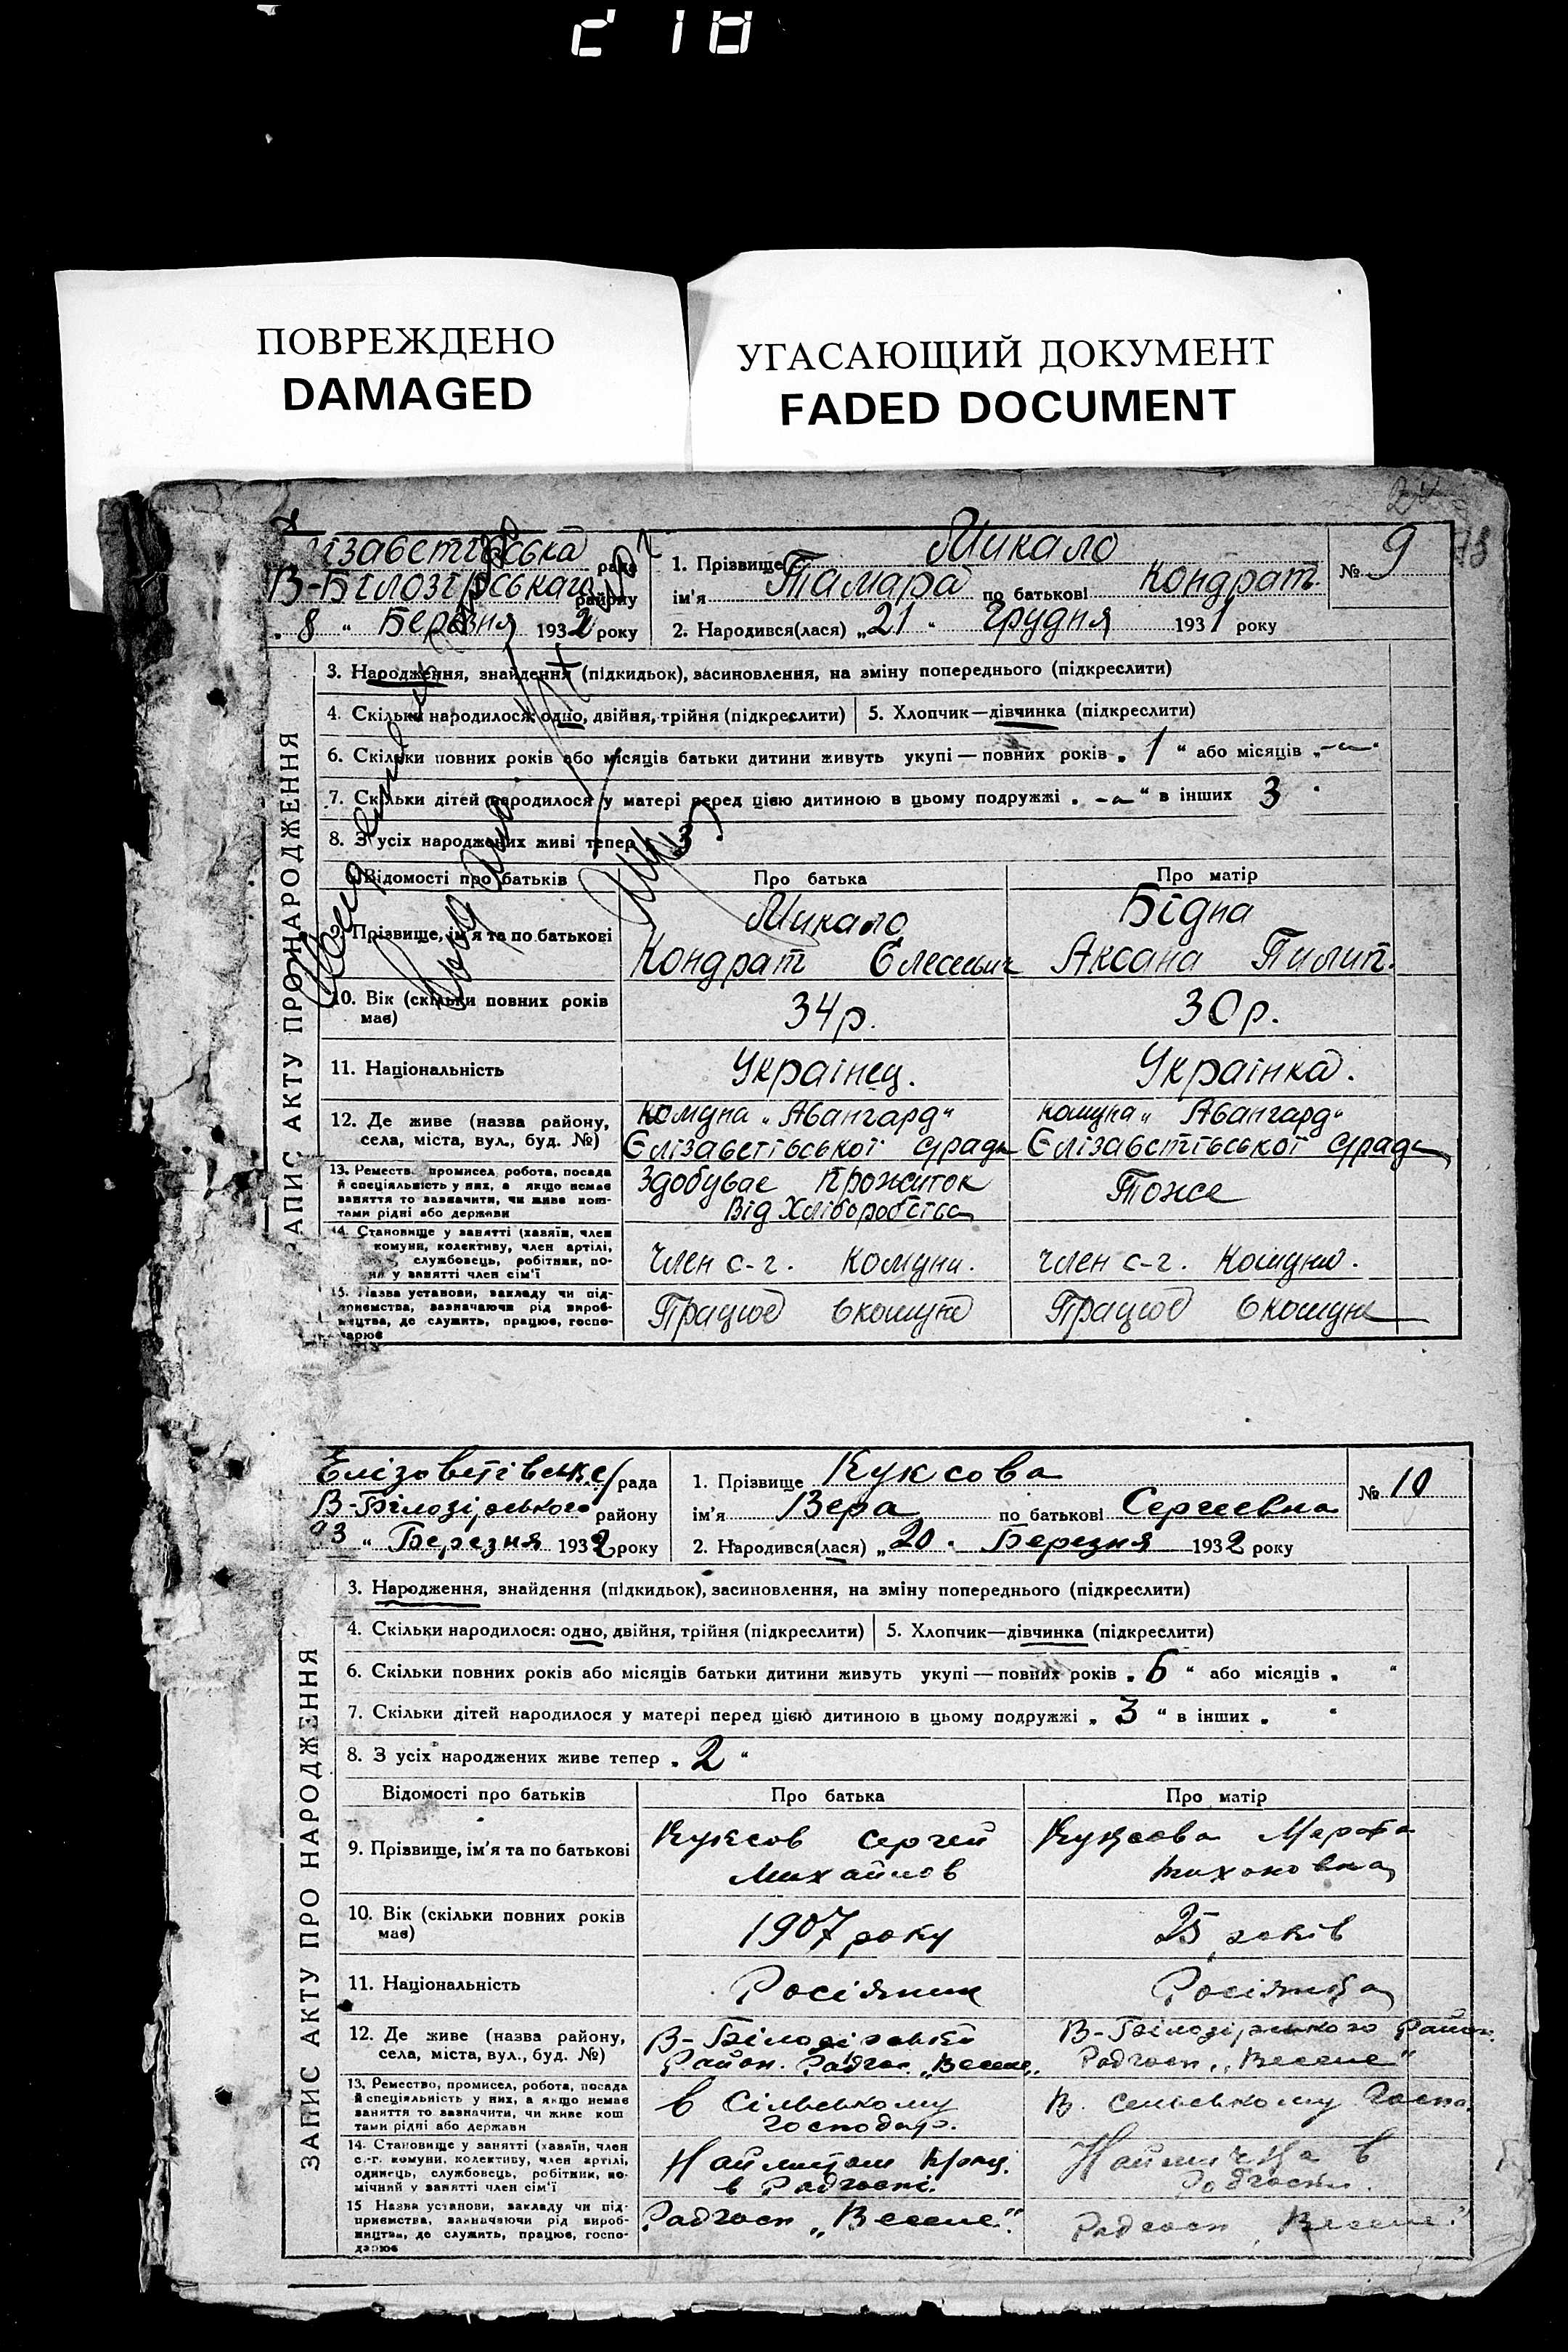 ПОВРЕЖДЕНО
DAMAGED
УГАСАЮЩИЙ ДОКУМЕНТ
FADED DOCUMENT
рада
В-Білозірського району
„ 8 “ Березня 1932 року
1. Прізвище Микало
ім'я Тамара по батькові Кондрат.
№ 9
2. Народився(лася) „21“ Грудня 1931 року
ЗАПИС АКТУ ПРО НАРОДЖЕННЯ
3. Народження, знайдення (підкидьок), засиновлення, на зміну попереднього (підкреслити)
4. Скільки народилося: одно, двійня, трійня (підкреслити)
5. Хлопчик—дівчинка (підкреслити)
6. Скільки повних років або місяців батьки дитини живуть укупі — повних років „ 1 “ або місяців „ — “
7. Скільки дітей народилося у матері перед цією дитиною в цьому подружжі „ — “ в інших 3
8. З усіх народжених живі тепер 3
Відомості про батьків
Про батька
Про матір
9. Прізвище, ім'я та по батькові
Микало
Кондрат
Бідна
Аксана Пилип.
10. Вік (скільки повних років має)
34 р.
30 р.
11. Національність
Украінец.
Украінка.
12. Де живе (назва району,
села, міста, вул., буд. №)
комуна „Авангард“
Єлізаветівської с/ради
комуна „Авангард“
Єлізаветівської с/ради
13. Ремество, промисел, робота, посада
й спеціяльність у них, а якщо немає
заняття то зазначити, чи живе кош-
тами рідні або держави
Здобувае прожиток
Від Хліборобства
Тоже
14. Становище у занятті (хазяїн, член
комуни, колективу, член артілі,
службовець, робітник, по-
у занятті член сім'ї
член с-г. комуни.
член с-г. комуни.
15. Назва установи, закладу чи під-
приємства, зазначаючи рід вироб-
ництва, де служить, працює, госпо-
дарює
Працює в комуні
Працює в комуні
Елізоветівське с/рада
В-Білозірського району
23 “ Березня 1932 року
1. Прізвище Куксова
ім'я Вера по батькові Сергеевна
№ 10
2. Народився(лася) „20“ Березня 1932 року
ЗАПИС АКТУ ПРО НАРОДЖЕННЯ
3. Народження, знайдення (підкидьок), засиновлення, на зміну попереднього (підкреслити)
4. Скільки народилося: одно, двійня, трійня (підкреслити)
5. Хлопчик—дівчинка (підкреслити)
6. Скільки повних років або місяців батьки дитини живуть укупі — повних років „ 6 “ або місяців „ “
7. Скільки дітей народилося у матері перед цією дитиною в цьому подружжі „ 3 “ в інших „ “
8. З усіх народжених живе тепер „ 2 “
Відомості про батьків
Про батька
Про матір
9. Прізвище, ім'я та по батькові
Куксов Сергей
Михайлов
Куксова Марфа
Тихоновна
10. Вік (скільки повних років
має)
1907 року
25 років
11. Національність
Росіянин
Росіянка
12. Де живе (назва району,
села, міста, вул., буд. №)
В-Білозірський
Район. Радгос. „Веселе“
В-Білозірського Район.
Радгосп „Веселе“
13. Ремество, промисел, робота, посада
й спеціяльність у них, а якщо немає
заняття то зазначити, чи живе кош
тами рідні або держави
в Сільському
господар.
В. сельському Госпо.
14. Становище у занятті (хазяїн, член
с.-г. комуни, колективу, член артілі,
одинець, службовець, робітник, по-
мічний у занятті член сім'ї
в Радгоспі.
Наймичка в
Радгоспи.
15 Назва установи, закладу чи під-
приємства, зазначаючи рід вироб-
ництва, де служить, працює, госпо-
дарює
Радгосп „Веселе“.
Радгосп „Веселе“